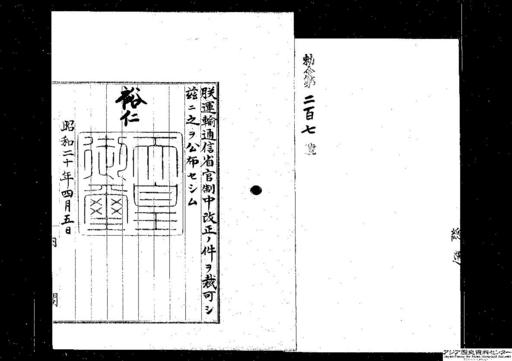 勅令第二百七号
朕運輸通信省官制中改正ノ件ヲ裁可シ
茲ニ之ヲ公布セシム
裕仁
天皇御璽
昭和二十年四月五日
内閣
アジア歴史資料センター